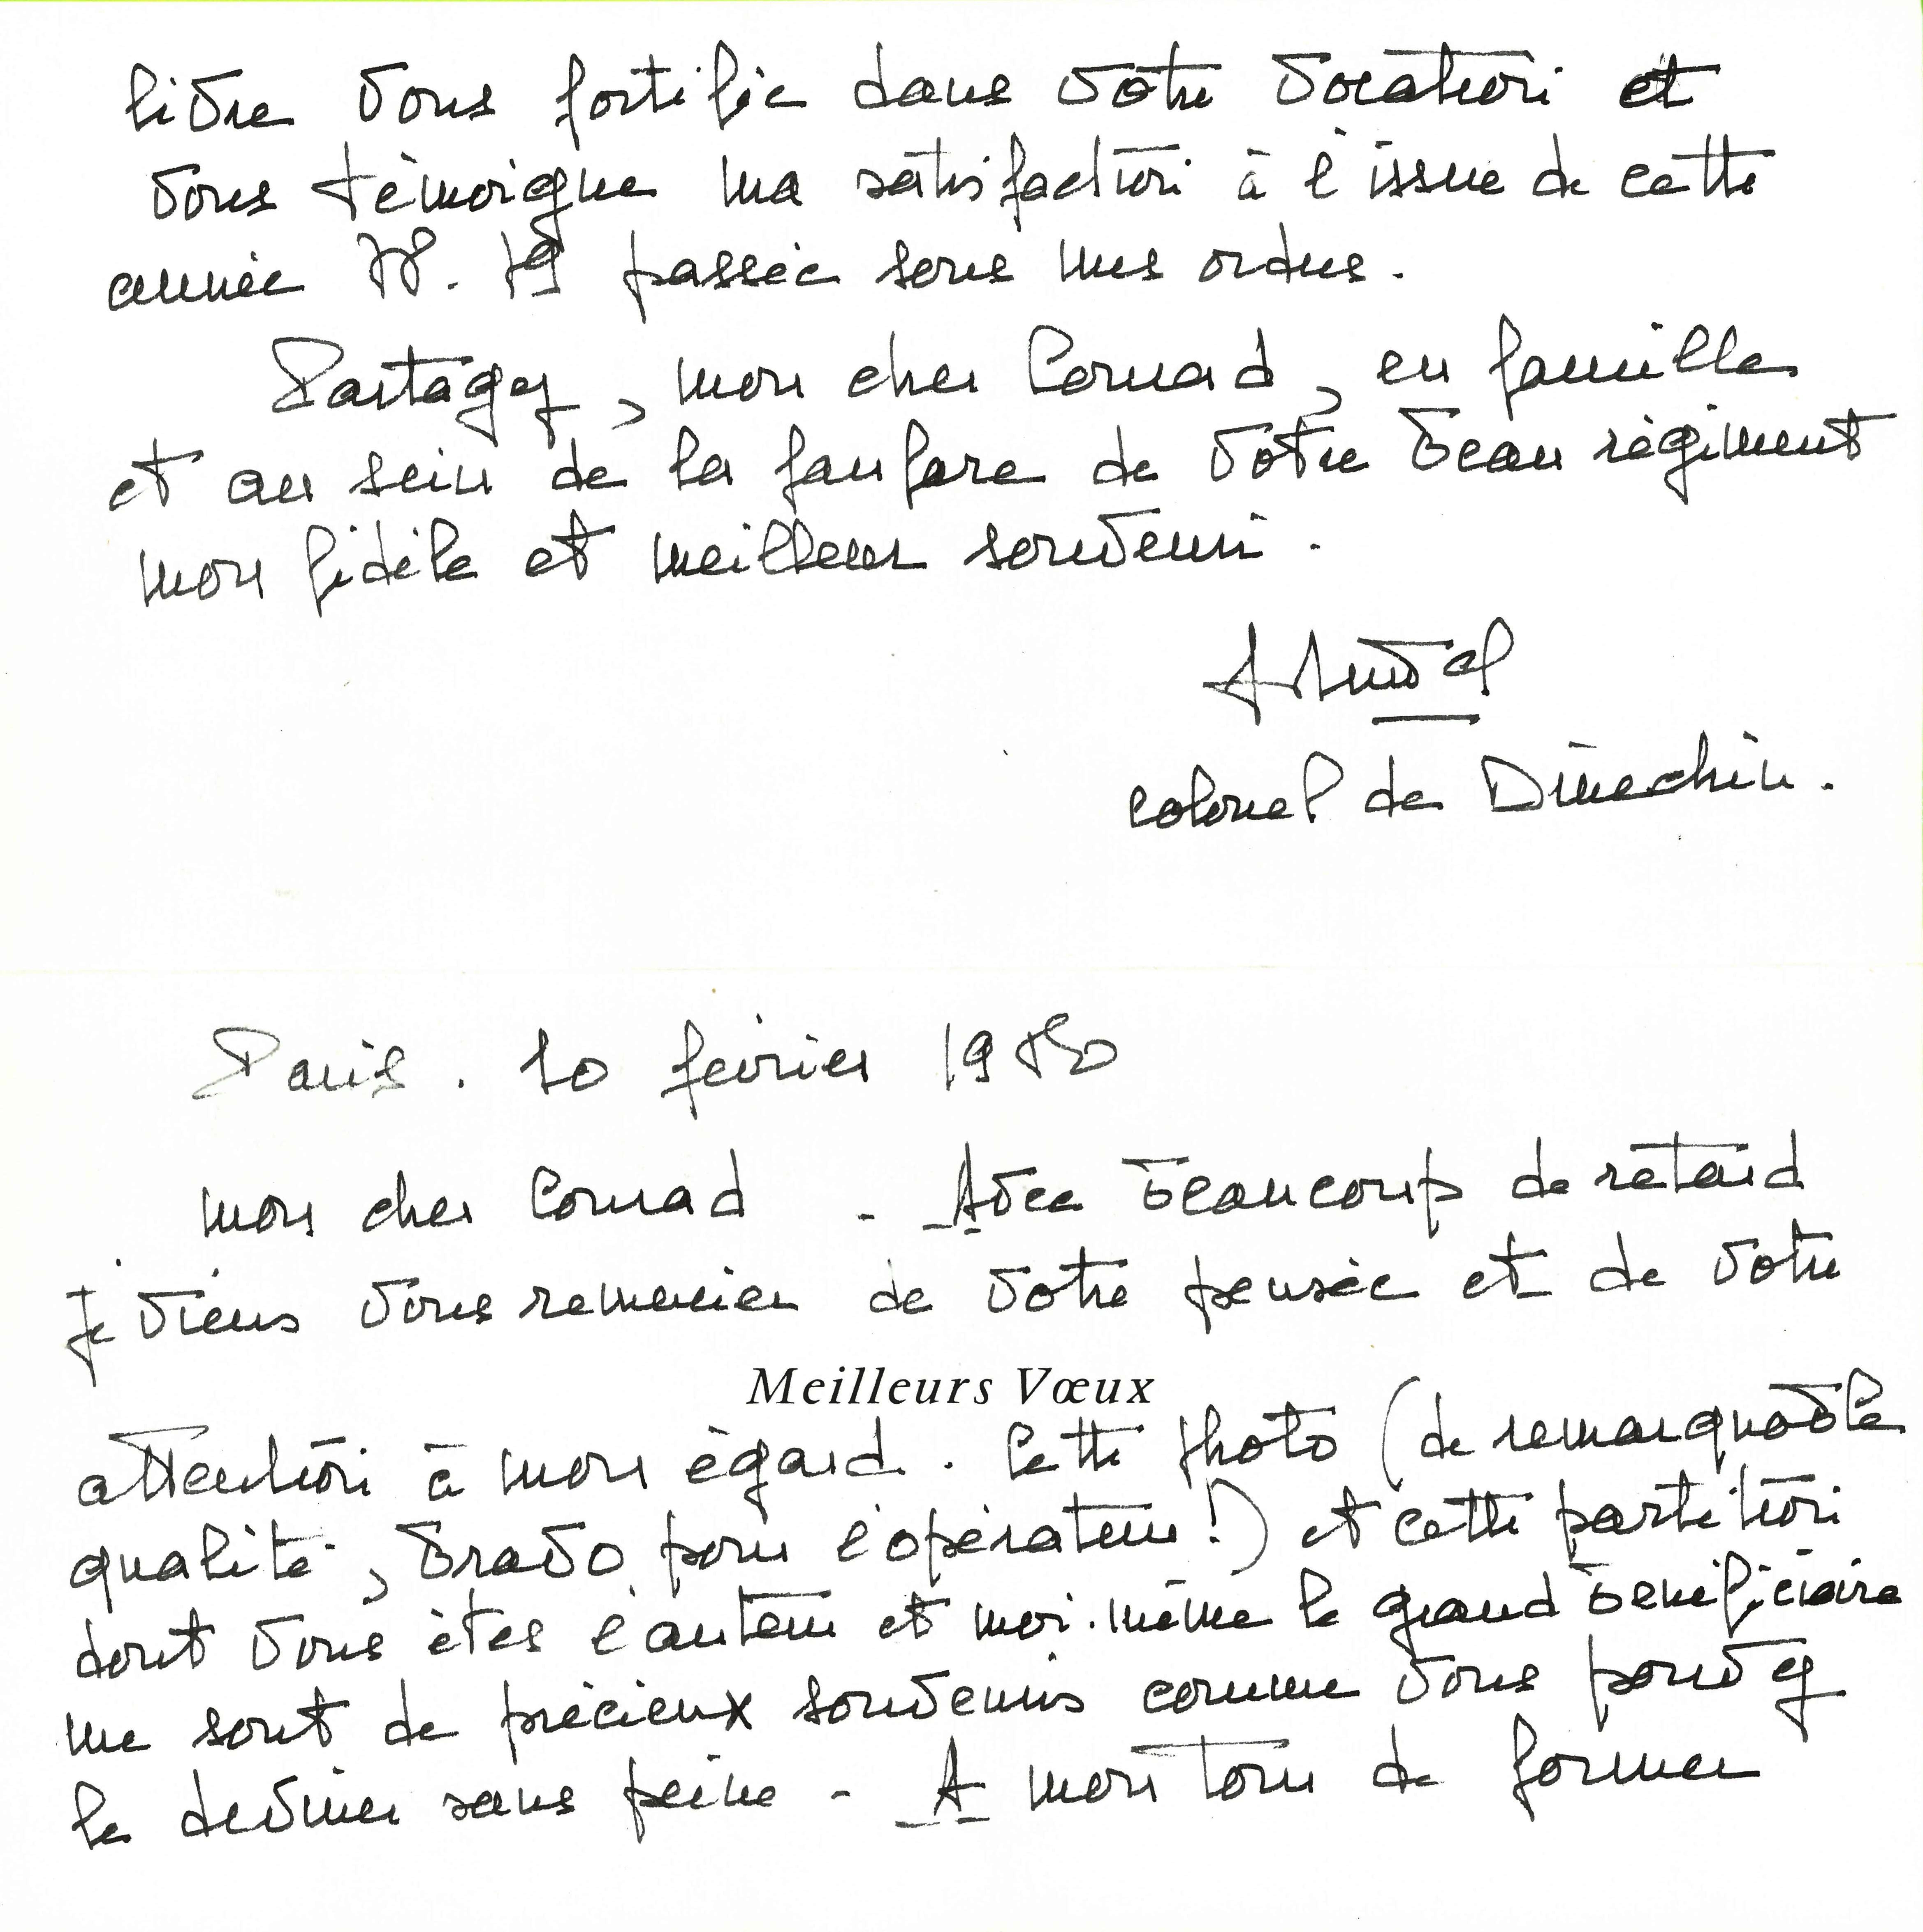 livre vous fortifie dans votre vocation et
vous témoigne ma satisfaction à l'issue de cette
année 78.79 passée sous mes ordres.
Partagez, mon cher Conrad, en famille
et au sein de la fanfare de votre beau régiment
mon fidèle et meilleur souvenir.
colonel de Dinechin.
Paris. 10 février 1980
mon cher Conrad - Avec beaucoup de retard
je viens vous remercier de votre pensée et de votre
Meilleurs Vœux
attention à mon égard. Cette photo (de remarquable
qualité, bravo pour l'opérateur!) et cette partition
dont vous êtes l'auteur et moi-même le grand bénéficiaire
me sont de précieux souvenirs comme vous pouvez
le deviner sans peine - A mon tour de former